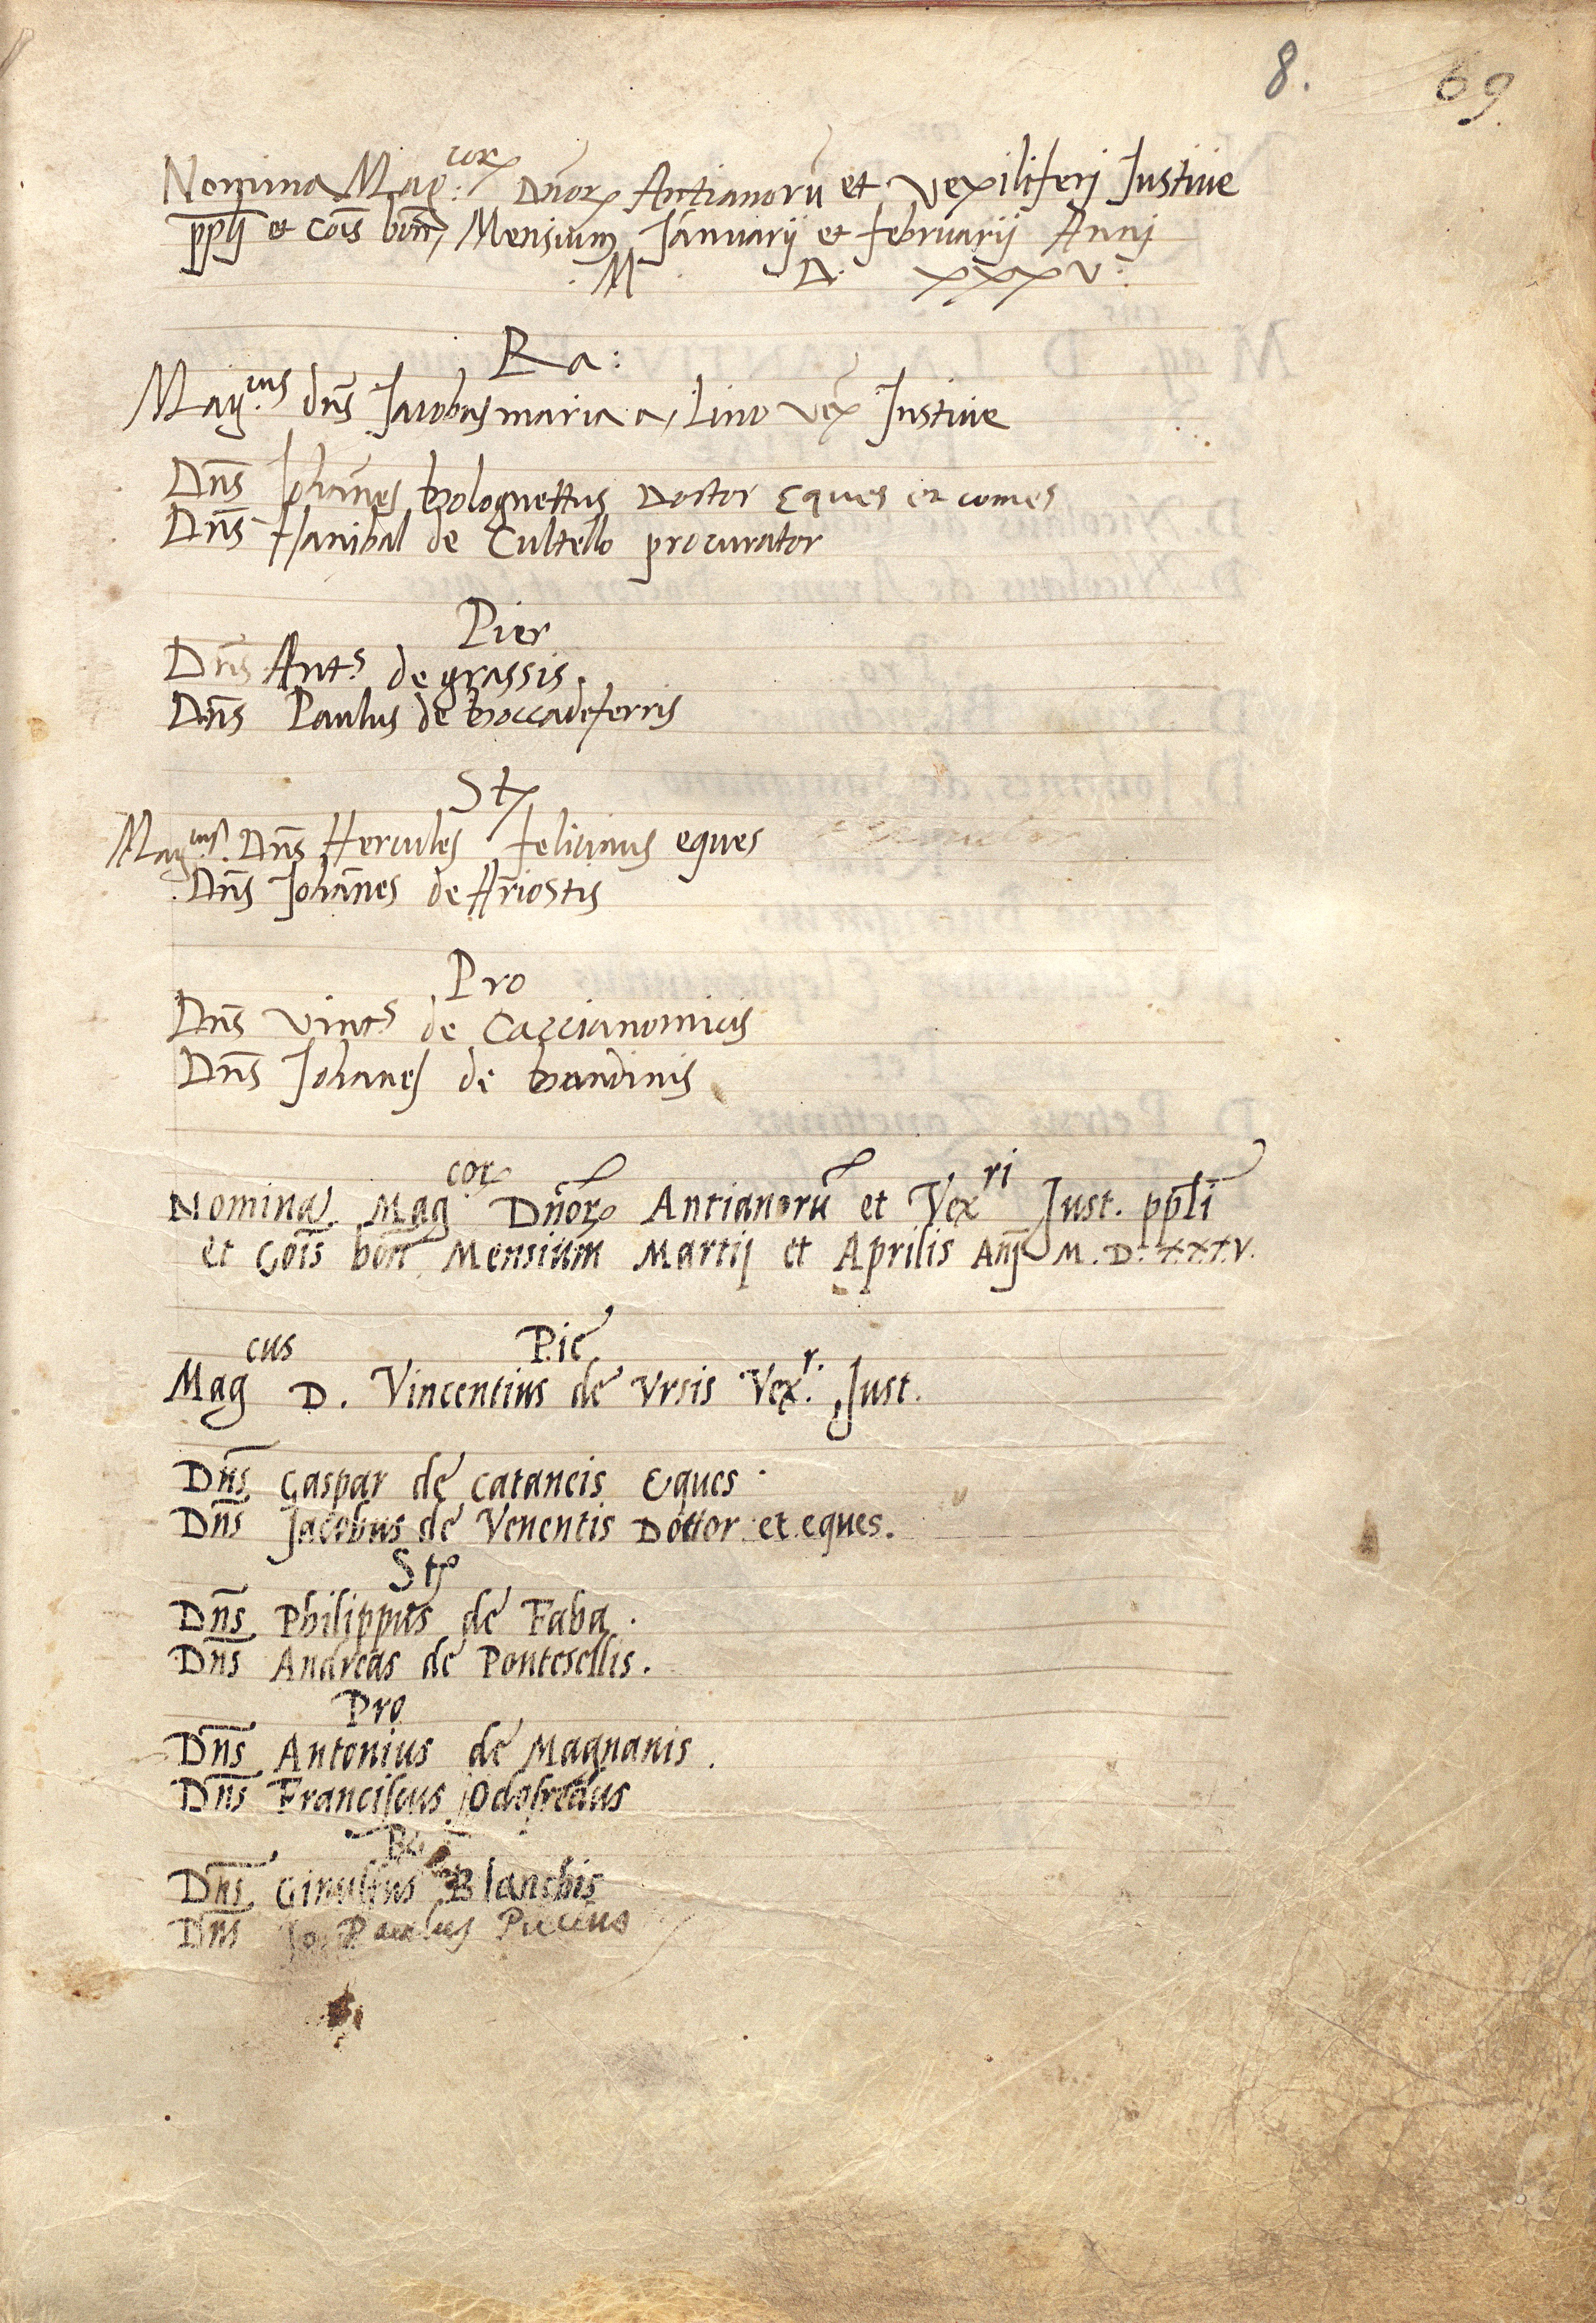 8. 69
Nomina Mag:cor Dnor Antianorū et Vexiliferi Justitie
ppli et cōis bon, Mensium Januarij et februarij Annj
M D: xxxv:
Ra:
Mag.cus dns Jacobus maria a, Lino vex Justitie
Dns Johānes bolognettus Doctor Eques et comes
Dns Hanibal de Cultello procurator
Pier
Dns Ant.s de grassis.
Dns Paulus de boccadeferris
St
Mag.cus. Dns Hercules felicinus eques
Dns Johānes de Ariostis
Pro
Dns Vinc.s de Caccianomicis
Dns Johanes de bandinis
Nomina Mag cor Dnor Antianorū et Vex ri Just. ppli
et Cōis bon Mensium Martij et Aprilis Anj M. D. XXXV.
Pie
Mag cus D. Vincentius de Ursis Vex r. Just.
Dns Gaspar de cataneis Eques.
Dns Jacobus de Venentis Dottor et eques.
St
Dns Philippus de Faba.
Dns Andreas de Pontesellis.
Pro
Dns Antonius de Magnanis.
Dns Franciscus Odofredus
Ra
Dns Blanchis
Dns Jo. Paulus